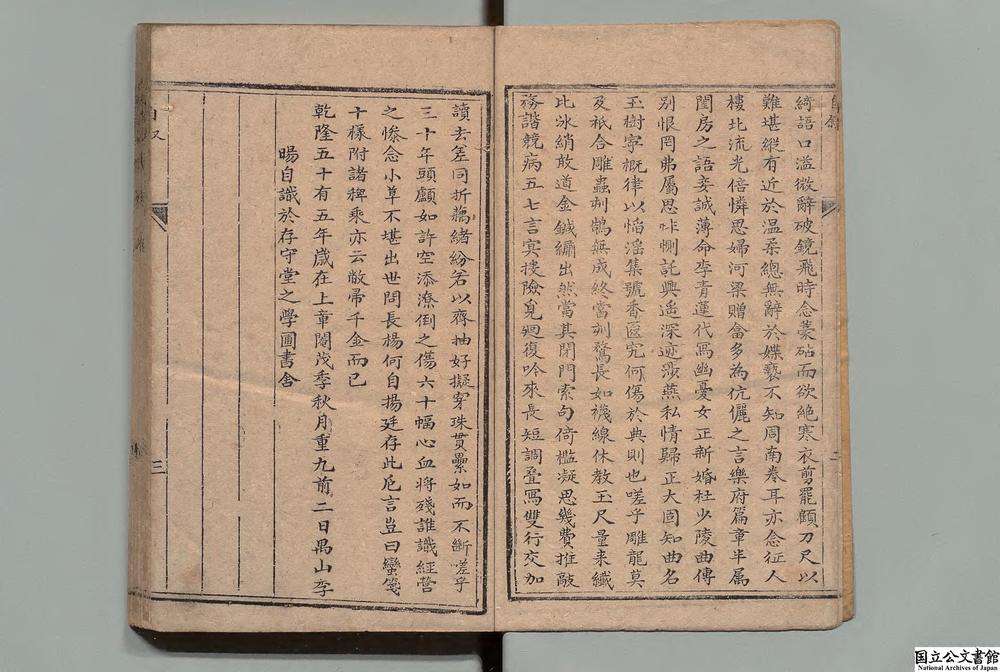 自敘
二
綺語口溢微辭破鏡飛時念藁砧而欲絶寒衣剪罷顧刀尺以
難堪縱有近於温柔總無辭於媟褻不知周南卷耳亦念征人
樓北流光倍憐思婦河梁贈畣多為伉儷之言樂府篇章半属
閨房之語妾誠薄命李青蓮代寫幽憂女正新婚杜少陵曲傳
别恨罔弗屬思咔惻託興遥深迹涉燕私情歸正大固知曲名
玉樹寧概律以慆滛集號香匳究何傷於典則也嗟乎雕龍莫
及祇合雕蟲刺鵠無成終當刻鶩長如襪線休教玉尺量来纖
比冰綃敢道金鍼繡出然當其閉門索句倚檻凝思幾費推敲
務諧競病五七言寘摟險覓廻復吟來長短調疊寫雙行交加
讀去差同折藕緒紛若以齊抽好擬穿珠貫纍如而不斷嗟乎
三十年頭顱如許空添潦倒之傷六十幅心血將殘誰識經營
之慘念小草不堪出世問長楊何自揚廷存此巵言豈曰蠻箋
十樣附諸稗乘亦云敝帚千金而已
乾隆五十有五年歲在上章閹茂季秋月重九前二日禺山李
暘自識於存守堂之學圃書舍
自叙
三
国立公文書館
National Archives of Japan